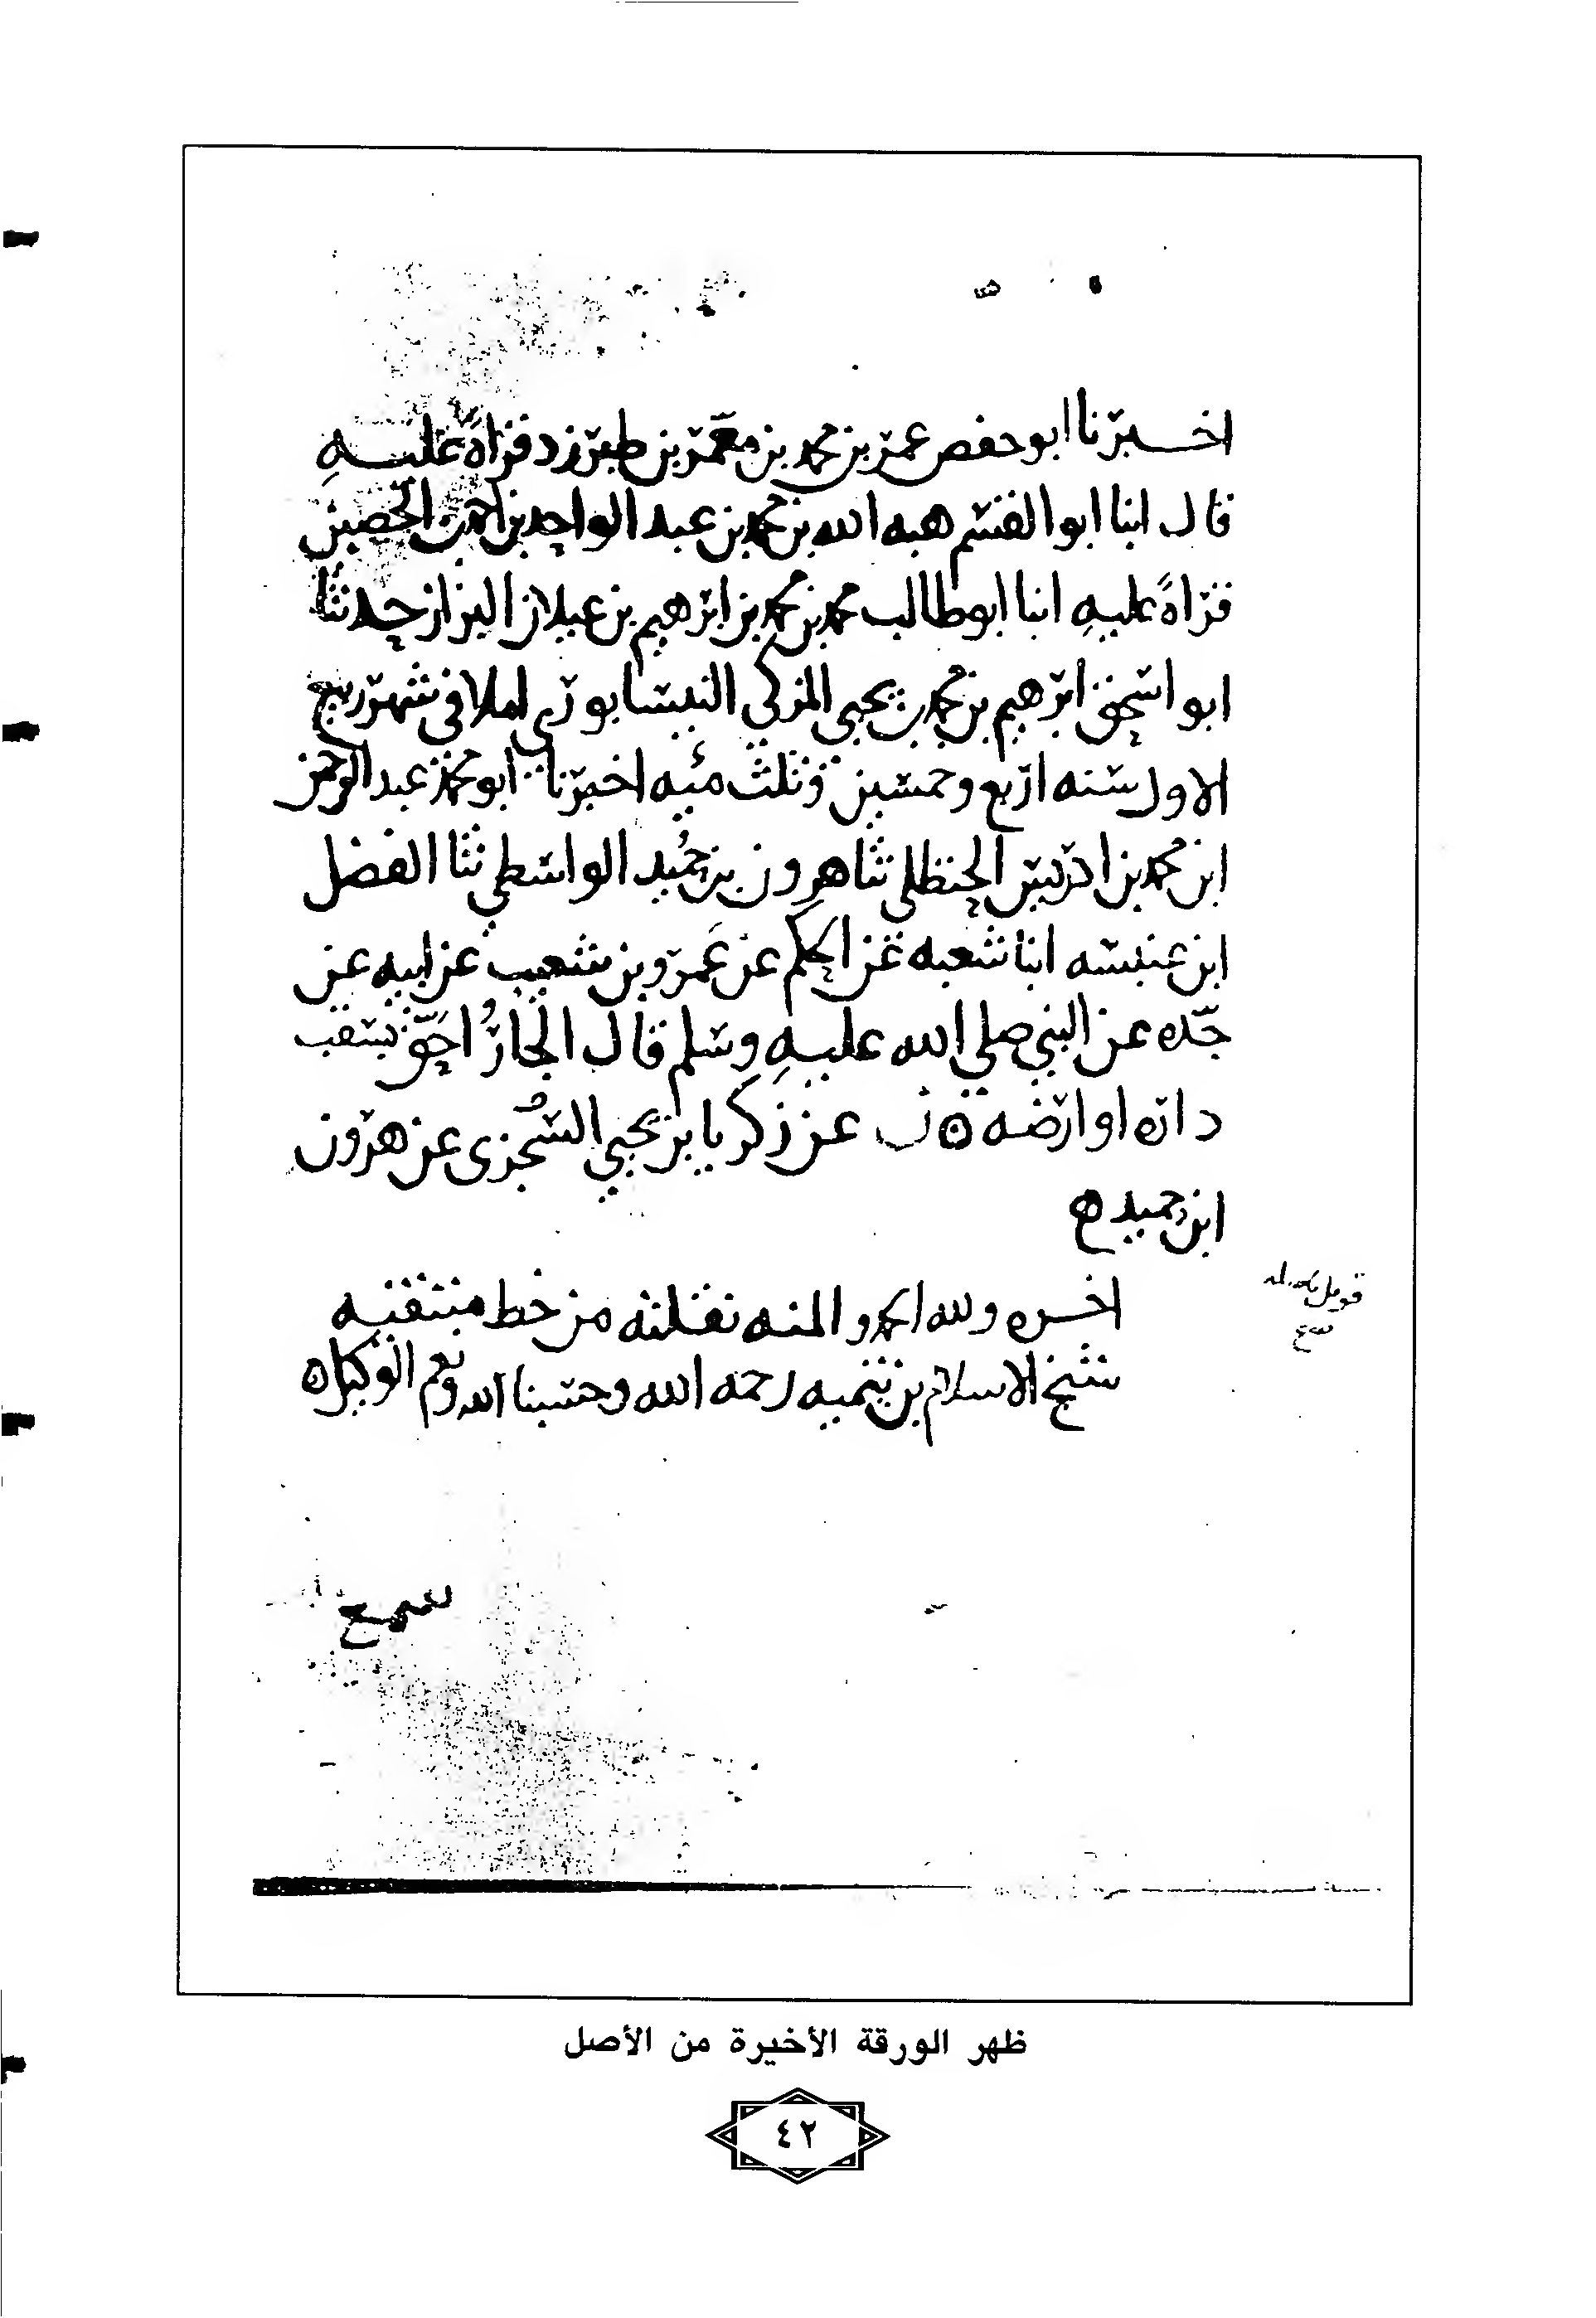 اخبرنا ابو حفص عمر بن محمد بن معمر بن طبرزد قراةً عليهِ
قال انبا ابو القسم هبه الله بن محمد بن عبد الواحد بن احمد بن الحصين
قراةً عليهِ انبا ابو طالب محمد بن محمد بن ابرهيم بن عيلان البزاز حدثنا
ابو اسحق ابرهيم بن محمد بن يحيى المزكي النيسابوري املا في شهر ربيع
الاول سنه اربع وخمسين وثلث مئيه اخبرنا ابو محمد عبد الرحمن
ابن محمد بن ادريس الحنظلي ثنا هرون بن حُميد الواسطي ثنا الفضل
ابن عنبسه انبا شعبه عن الحكم عن عَمرو بن شعيب عن ابيه عن
جّده عن النبي صلي الله عليهِ وسلم قال الجارُ احَقّ بسقب
داره او ارضه ن س عن زكريا بن يحيي السجزى عن هرون
ابن حميد ه
اخره ولله الحمد والمنه نقلته من خط منتقيه
شيخ الاسلام بن تيميه رحمه الله وحسبنا الله ونعم الوكيل ه
قوبل باصله
ظهر الورقة الأخيرة من الأصل
٤٢